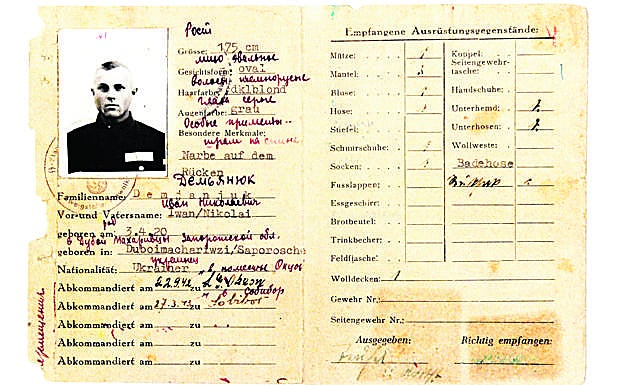 Рост
Größe: 175 cm
лицо овальное
Gesichtsform: oval
волосы темнорусые
Haarfarbe: dklblond
глаза серые
Augenfarbe: grau
Особые приметы
Besondere Merkmale:
шрам на спине
Narbe auf dem
Rücken
Демьянюк
Familienname: Demjanjuk
Иван Николаевич
Vor- und Vatersname: Iwan/Nikolai
род
geboren am: 3.4.20
в Запорожской обл.
geboren in: Duboimachariwzi/Saporosche
украинец
Nationalität: Ukrainer
Abkommandiert am 22.9.42 zu L.G.
Собибор
Abkommandiert am 27.3.43 zu Sobibor
Abkommandiert am zu
Abkommandiert am zu
Abkommandiert am zu
Empfangene Ausrüstungsgegenstände:
Mütze: 1
Mantel:
Bluse: 1
Hose: 1
Stiefel:
Schnürschuhe:
Socken:
Fusslappen:
Essgeschirr:
Brotbeutel:
Trinkbecher:
Feldflasche:
Wolldecken: 1
Gewehr Nr.:
Seitengewehr Nr.:
Koppel:
Seitengewehr-
tasche:
Handschuhe:
Unterhemd:
Unterhosen:
Wollweste:
Badehose
Ausgegeben: Richtig empfangen: